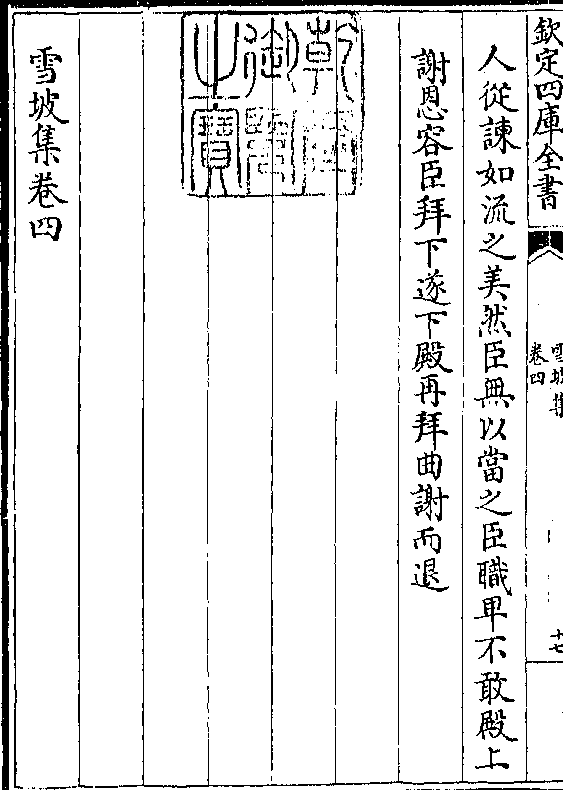 欽定四庫全書
雪坡集
卷四
十七
人從諫如流之美然臣無以當之臣職卑不敢殿上
謝恩容臣拜下遂下殿再拜曲謝而退
乾隆
御覽
之寶
雪坡集卷四